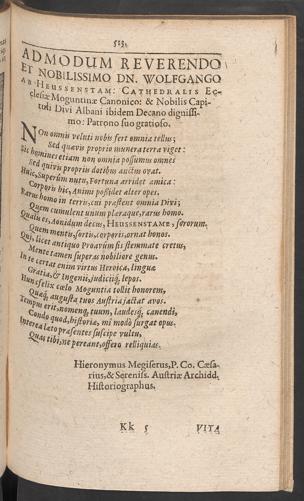 523.
ADMODUM REVERENDO
ET NOBILISSIMO DN. WOLFGANGO
AB HEUSSENSTAM: CATHEDRALIS EC-
clesiæ Moguntinæ Canonico: & Nobilis Capi-
toli Divi Albani ibidem Decano dignissi-
mo: Patrono suo gratioso.
NOn omnis veluti nobis fert omnia tellus;
Sed quævis proprio munere terra viget:
Sic homines etiam non omnia possumus omnes
Sed quivis propriis dotibus auctus ovat.
Huic, Superûm nutu, Fortuna arridet amica:
Corporis hic, Animi possidet alter opes.
Rarus homo in terris, cui præstent omnia Divi;
Quem cumulent unum pleraque, rarus homo.
Qualis es, Aonidum decus, HEUSSENSTAME, sororum,
Quem mentis, sortis, corporis, ornat honos.
Qui, licet antiquo Proavûm sis stemmate cretus,
Mente tamen superas nobiliore genus.
In te certat enim virtus Heroica, lingua
Gratia, & Ingenii, judiciiq́, lepos.
Hun felix cælo Moguntia tollit honorem,
Quaq́, augusta tuos Austria jactat avos.
Tempus erit, nomenq́, tuum, laudesq́, canendi,
Condo quod, historiæ, mi modò surgat opus.
Interea lato præsentes suscipe vultu,
Quas tibi, ne pereant, offero relliquias.
Hieronymus Megiserus, P. Co. Cæsa-
rius, & Sereniss. Austriæ Archidd.
Historiographus.
Kk 5 VITA